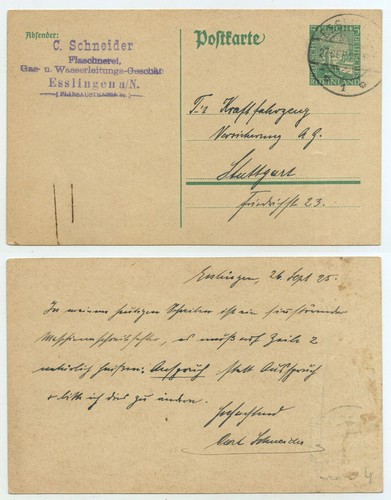 Absender:
C. Schneider
Flaschnerei,
Gas- u. Wasserleitungs-Geschäft
Esslingen a/N.
Postkarte
Kraftfahrzeug
Versicherung A.G.
Stuttgart
Friedrichstr. 23.
Esslingen, 26 Sept 25.
In meinem heutigen Schreiben ist ein sinnstörender
es muß auf Zeile 2
natürlich heißen: Anspruch statt Ausspruch
& bitte ich dies zu ändern.
Hochachtend
Carl Schneider